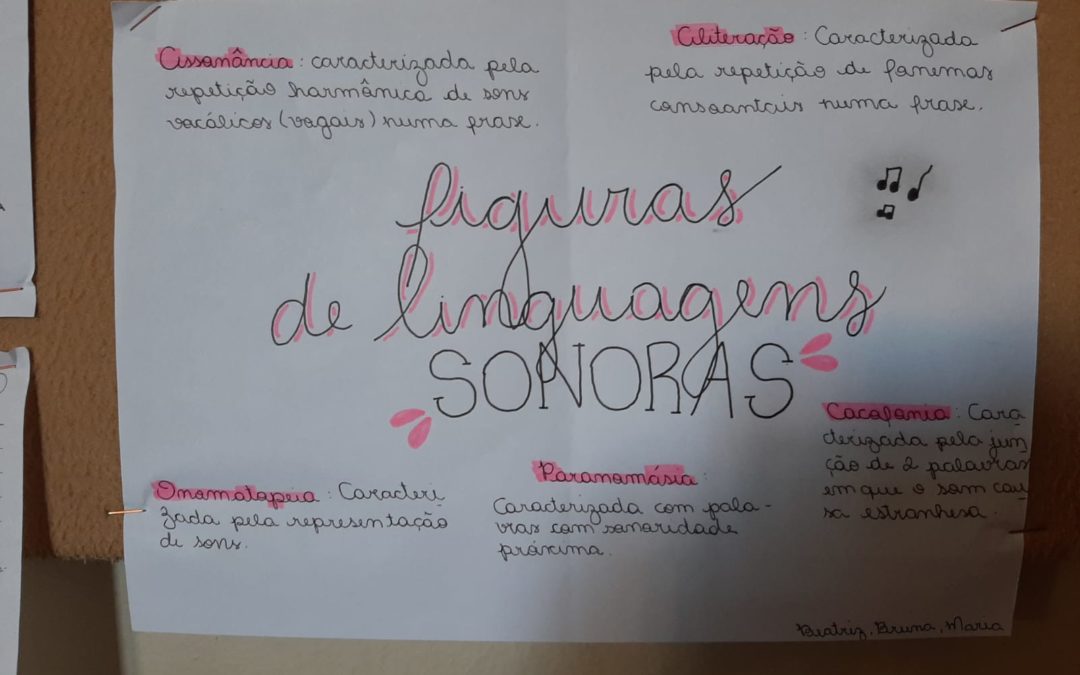 Assonância: caracterizada pela
repetição harmônica de sons
vocálicos (vogais) numa frase.
Aliteração: Caracterizada
pela repetição de fonemas
consoantais numa frase.
figuras
de linguagens
SONORAS
Cacofonia: Cara
cterizada pela jun
ção de 2 palavras
em que o som cau
sa estranhesa.
Onomatopeia: Caracteri
zada pela representação
de sons.
Paronomásia:
Caracterizada com pala-
vras com sonoridade
próxima.
Beatriz, Bruna, Maria